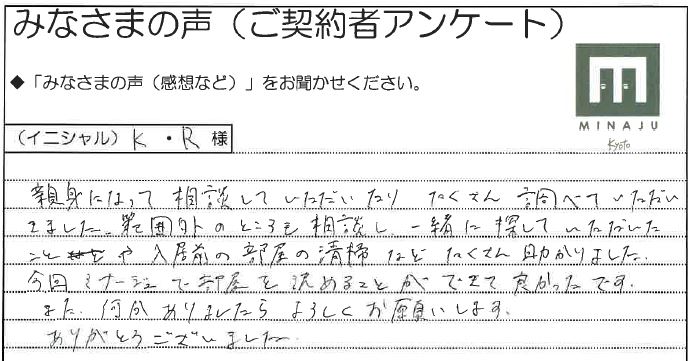 みなさまの声（ご契約者アンケート）
◆「みなさまの声（感想など）」をお聞かせください。
MINAJU
Kyoto
（イニシャル）K・R様
親身になって相談していただいたり たくさん調べていただい
てました。範囲外のところも相談し、一緒に探していただいた
ことや入居前の部屋の清掃などたくさん助かりました。
今回ミナージュで部屋を決めることができて良かったです。
また、何かありましたらよろしくお願いします。
ありがとうございました。